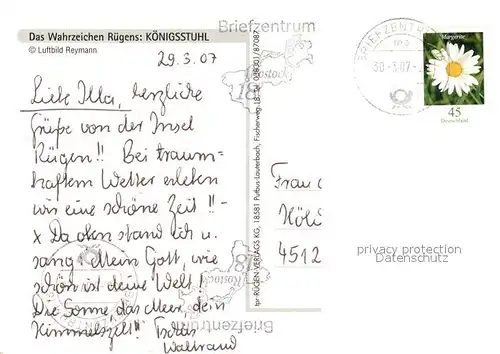 Briefzentrum
Das Wahrzeichen Rügens: KÖNIGSSTUHL
© Luftbild Reymann
29.3.07
Liebe Illa, herzliche
Grüße von der Insel
Rügen!! Bei traum-
haftem Wetter erleben
wir eine schöne Zeit!! -
x Da oben stand ich u.
sang: Mein Gott, wie
schön ist deine Welt!
Die Sonne, das Meer, dein
Himmelszelt!!
Waltraud
Briefzentrum
Rostock
18
tpr: RÜGEN-VERLAGS KG, 18581 Putbus-Lauterbach, Fischerweg 18, Tel. 038301/87087
Rostock
18
BRIEFZENTRUM
30.-3.07
Margerite
45
Deutschland
Frau
4512
privacy protection
Dateschutz